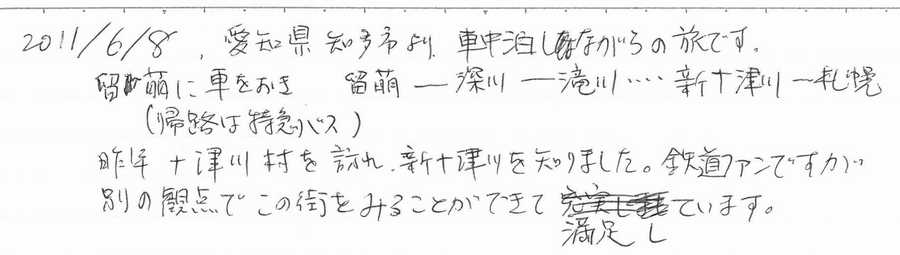 2011/6/8, 愛知県知多市より、車中泊しながらの旅です。
留萌に車をおき 留萌ー深川ー滝川‥‥新十津川ー札幌
(帰路は特急バス)
昨年十津川村を訪れ、新十津川を知りました。鉄道ファンですが
別の観点でこの街をみることができて満足しています。